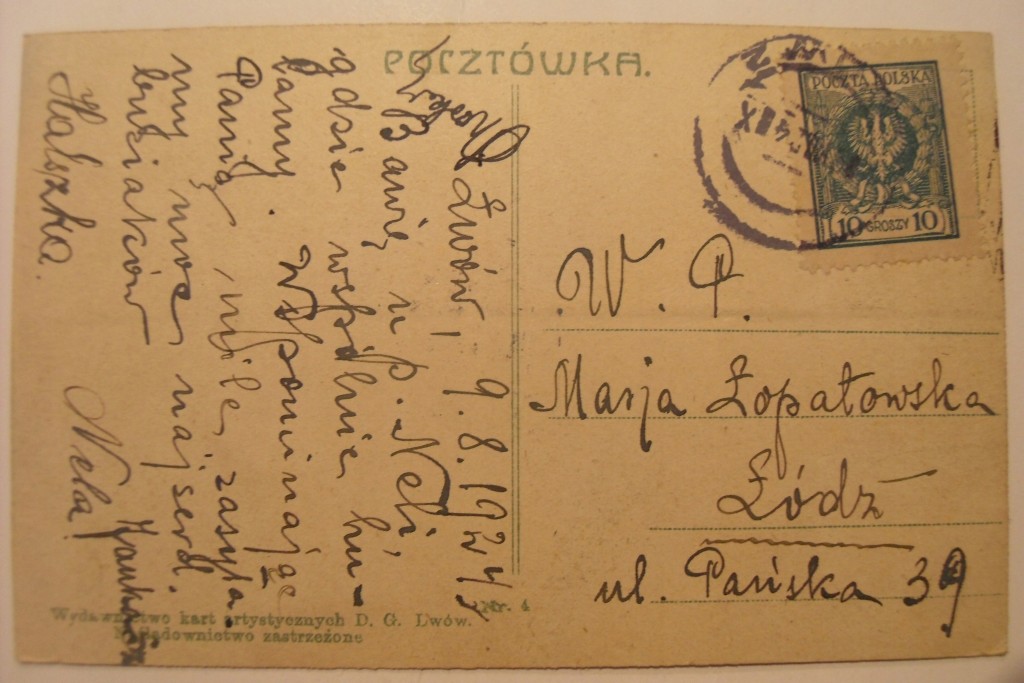 POCZTÓWKA.
Lwów, 9.8.1924
Bawię u p. Neli,
gdzie wspólnie hu-
lamy. Wspominając
Panią mile, zasyła-
my moc najserd.
buziaków
Halszka. Nela
W. P.
Marja Łopatowska
Łódź
ul. Pańska 39
POCZTA POLSKA
10 GROSZY 10
Nr. 4
Wydawnictwo kart artystycznych D. G. Lwów.
Naśladownictwo zastrzeżone